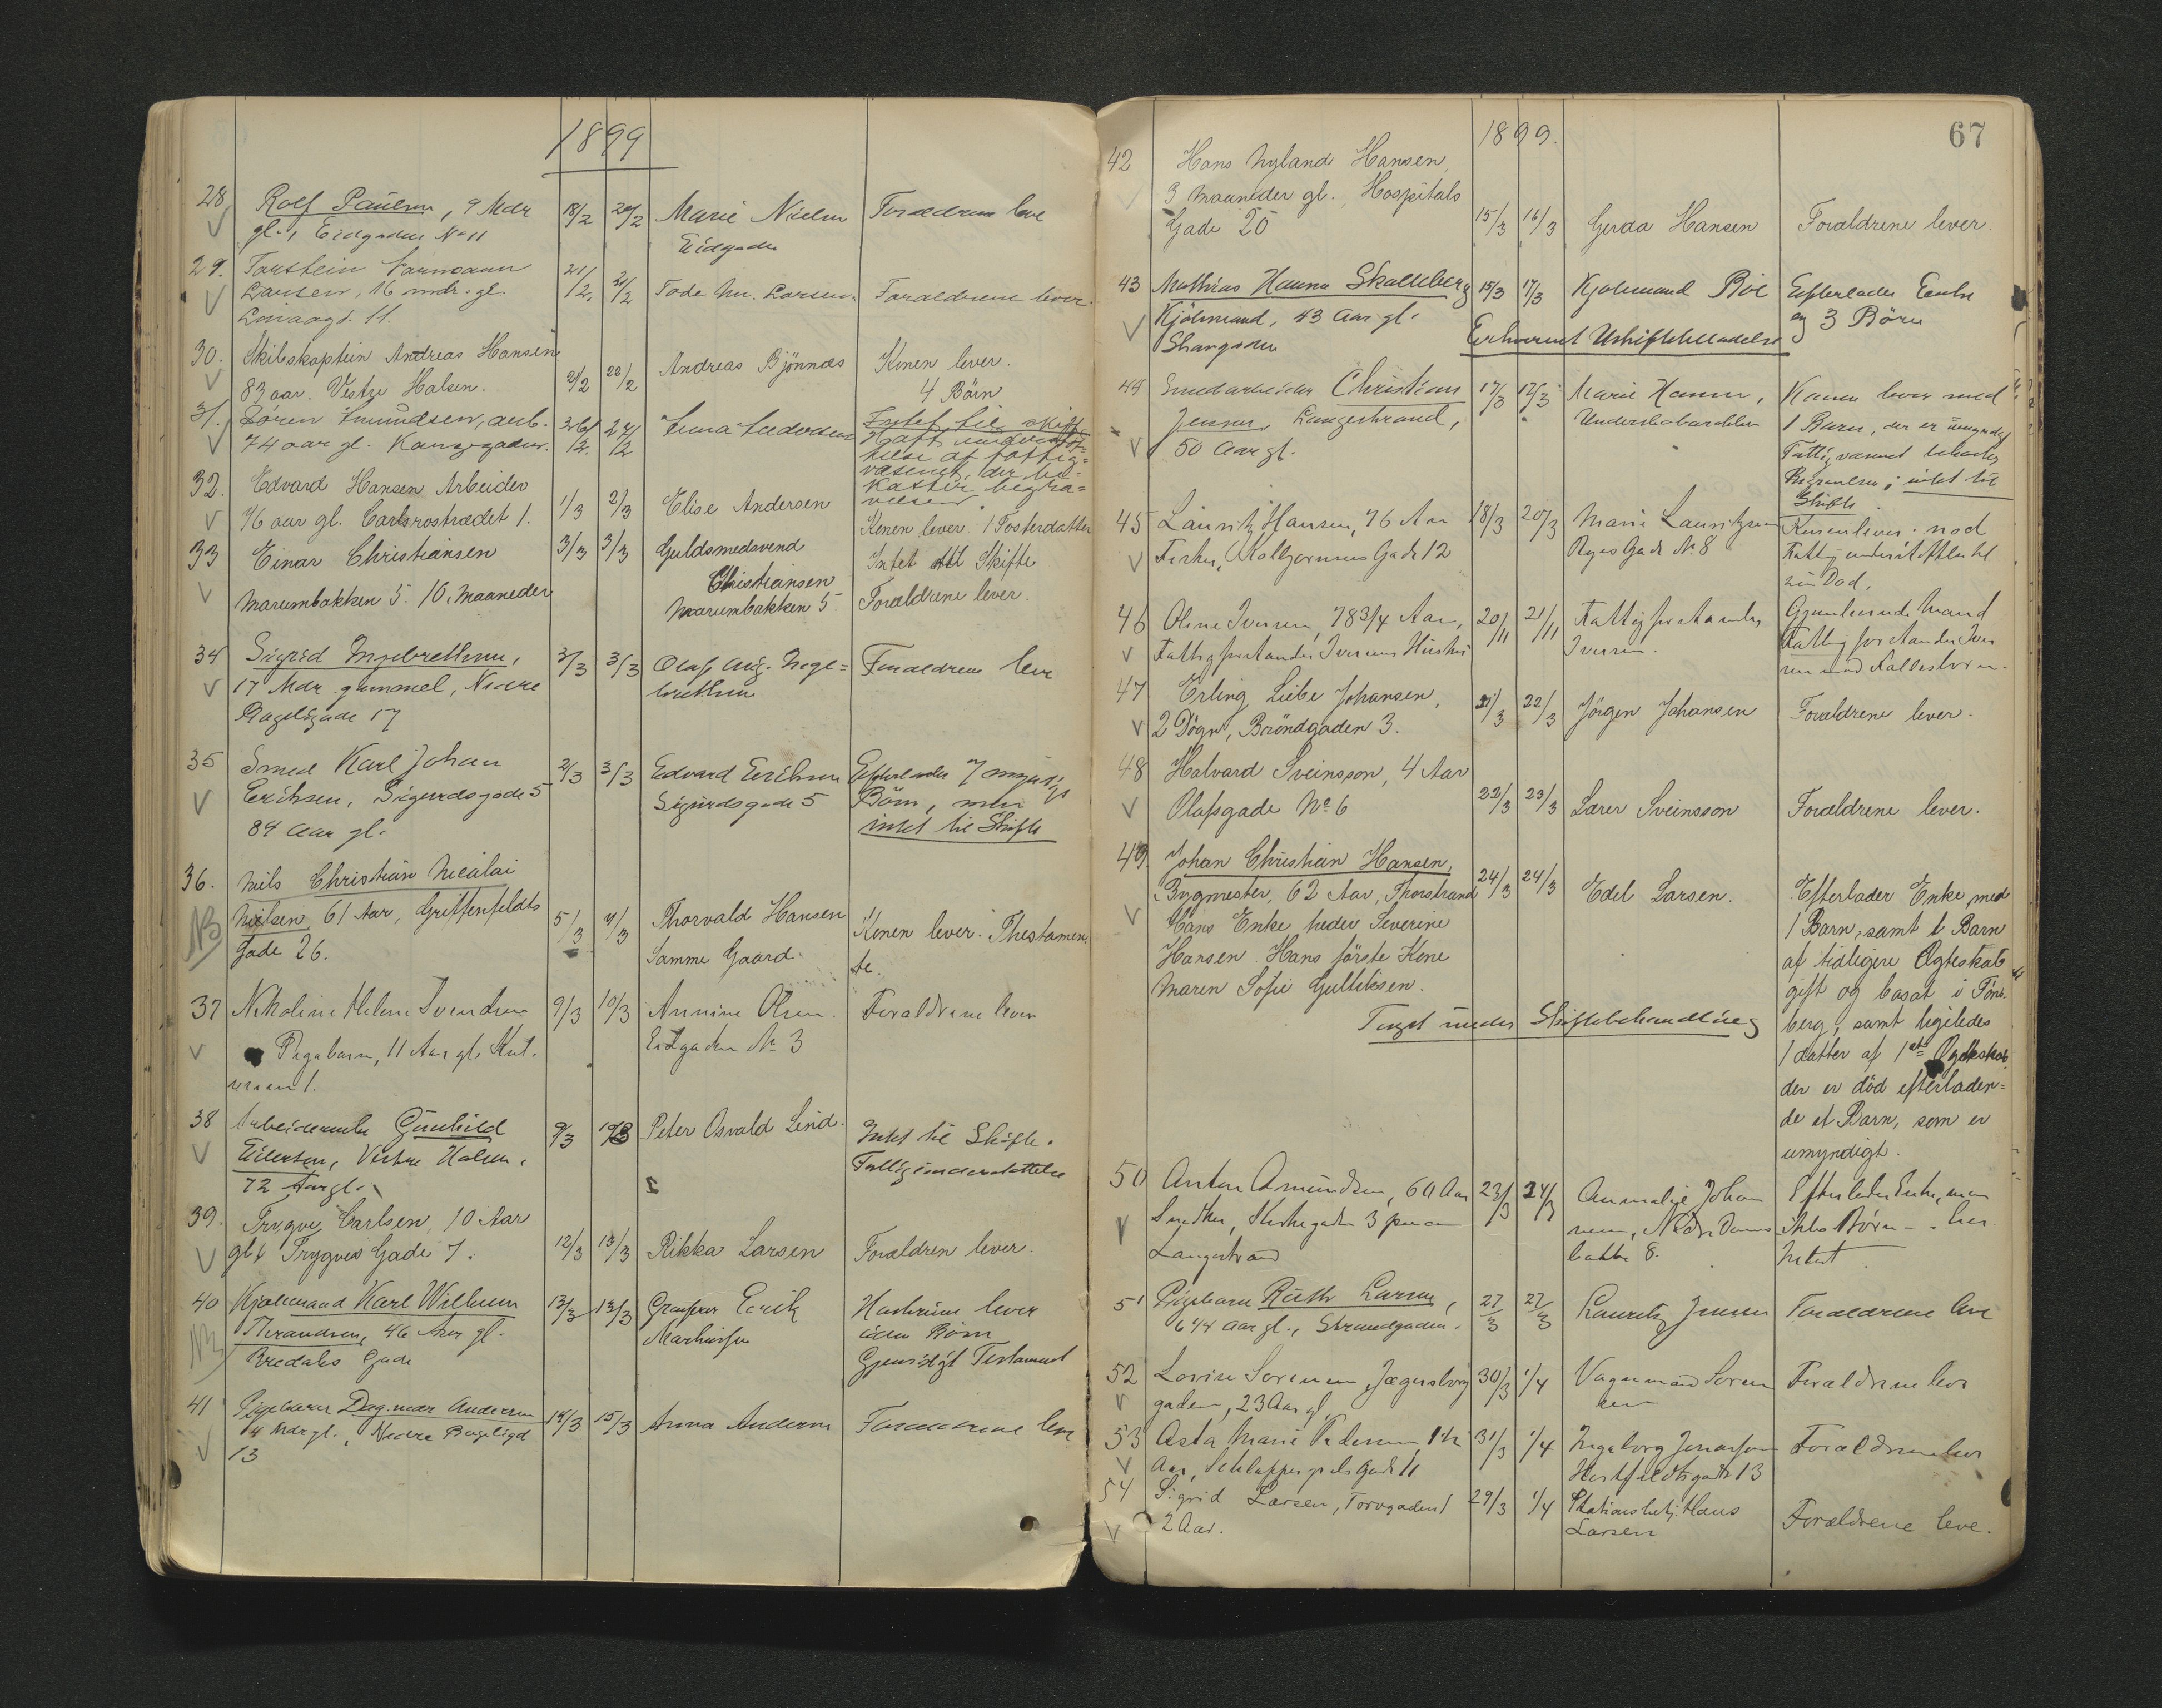 1899
28 Rolf Paulsen, 9 Mdr 18/2 20/2 Marie Nielsen Forældrene leve
gl., Eidgaden No 11 Eidgaden
29. Torstein Larsen, 16 mdr. gl. 21/2. 21/2 Forældrene lever.
11.
30. Skibskaptein Andreas Hansen
83 aar. Vestre Halsen. 21/2 22/2 Andreas Bjönnæs Konen lever.
4 Börn
31. Sören Amundsen, arb. 26/2. 27/2 Intet til skifte
74 aar gl. Kongegaden. Haft understöt-
telse af fattig-
væsenet, der be-
koster begra-
velsen
32. Edvard Hansen Arbeider
76 aar gl. Carlsrostrædet 1. 1/3 2/3 Elise Andersen Konen lever. 1 Fosterdatter
33 Einar Christiansen 3/3 3/3 Guldsmedsvend Intet til Skifte
Christiansen
Marumbakken 5. 16, Maaneder Marumbakken 5. Forældrene lever.
34 Sigrid Ingebrethsen, 3/3 3/3 Olaf Aug. Inge- Forældrene leve
17 Mdr gammel, Nedre brethsen
Bageligade 17
35 Smed Karl Johan 2/3 3/3 Edvard Eriksen Efterlader 7 myndige
Eriksen, Sigurdsgade 5 Sigurdsgade 5 Börn, men
84 Aar gl. intet til Skifte
36. Niels Christian Nicalai
NB Nielsen, 61 Aar, Griffenfeldts 5/3 7/3 Thorvald Hansen Konen lever. Thestamen-
Gade 26. Samme Gaard. te.
37 Nikoline Helene Svendsen 9/3 10/3 Annine Olsen. Forældrene lever
Pigebarn, 11 Aar gl. Eidgaden No 3
1.
38 Arbeiderenke Gunhild 9/3 10/3 Peter Osvald Lind. Intet til Skifte.
Eilertsen, Vestre Halsen, Fattigunderstöttelse
72 Aar gl.
39. Trygve Carlsen, 10 Aar
gl. Trygves Gade 7. 12/3 13/3 Rikka Larsen Forældren lever.
40 Kjølemand Karl Wilhelm 13/3 13/3 Erik Hustruen lever
NB 46 Aar gl. Mathisen uden Börn
Bredals Gade Gjensidigt Testament
41 Pigebarn Dagmar Andersen 14/3 15/3 Anna Andersen Forældrene leve
4 Mdr gl., Nedre Bageligd
13
1899. 67
42 Hans Nyland Hansen,
3 Maaneder gl., Hospitals
Gade 25 15/3 16/3 Gerda Hansen Forældrene lever.
43 Mathias Hansen Skalleberg 15/3 17/3 Kjølemand Boe Efterlader Enke
Kjölemand, 43 Aar gl. og 3 Börn
Erhvervet Uskiftetilladelse
44 Smedarbeider Christian 17/3 17/3 Marie Hansen, Konen lever med
Jensen, Langestrand, 1 Barn, der er umyndig
50 Aar gl. Fattigvæsenet bekoster
Begravelsen; intet til
Skifte
45 Lauritz Hansen, 76 Aar 18/3 20/3 Marie Lauritzen Konen lever; nød
Fisker, Kolbjørnsens Gade 12 Ryes Gade No 8 Fattigunderstøttelse til
sin Død.
46 Oline Iversen, 78 3/4 Aar, 20/11 21/11 Fattigforstander Gjenlevende Mand
Fattigforstander Iversens Hustru Iversen. Fattigforstander Iver
sen med
47 Erling Liebe Johansen,
2 Dögn, Bröndgaden 3. 21/3 22/3 Jörgen Johansen Forældrene lever.
48 Halvard Sveinsson, 4 Aar
Olafsgade No 6 22/3 23/3 Lærer Sveinsson Forældrene lever.
49. Johan Christian Hansen,
Bygmester, 62 Aar, Thorstrand 24/3 24/3 Edel Larsen. Efterlader Enke, med
Hans Enke heder Severine 1 Barn, samt 1 Barn
Hansen. Hans förste Kone af tidligere Ægteskab
Maren Sofie Gulliksen. gift og bosat i Töns-
Taget under Skiftebehandling berg, samt ligeledes
1 datter af 1ste Ægteskab,
der er död efterladen-
de et Barn, som er
umyndigt.
50 Anton Amundsen, 60 Aar 23/3 24/3 Annalije Johan Efterlader Enke, men
Snedker, Kirkegaden 3 paa sen, Nedre Dams ikke Börn - her
Langestrand bakke 8. Intet
51 Pigebarn Ruth Larsen, 27/3 27/3 Lauritz Jensen Forældrene leve
6 1/4 Aar gl., Strandgaden.
52 Lovise Sørensen, Jægersborg 30/3 1/4 Vognmand Søren Forældrene leve
gaden, 23 Aar gl. sen
53 Asta Marie Pedersen, 1 1/2 31/3 1/4 Ingeborg Forældrene leve
Aar, Schlappegrels Gade 11 13
54 Sigrid Larsen, Torvgaden 1 29/3 1/4 Stationsbetj. Hans
2 Aar. Larsen Forældrene leve.